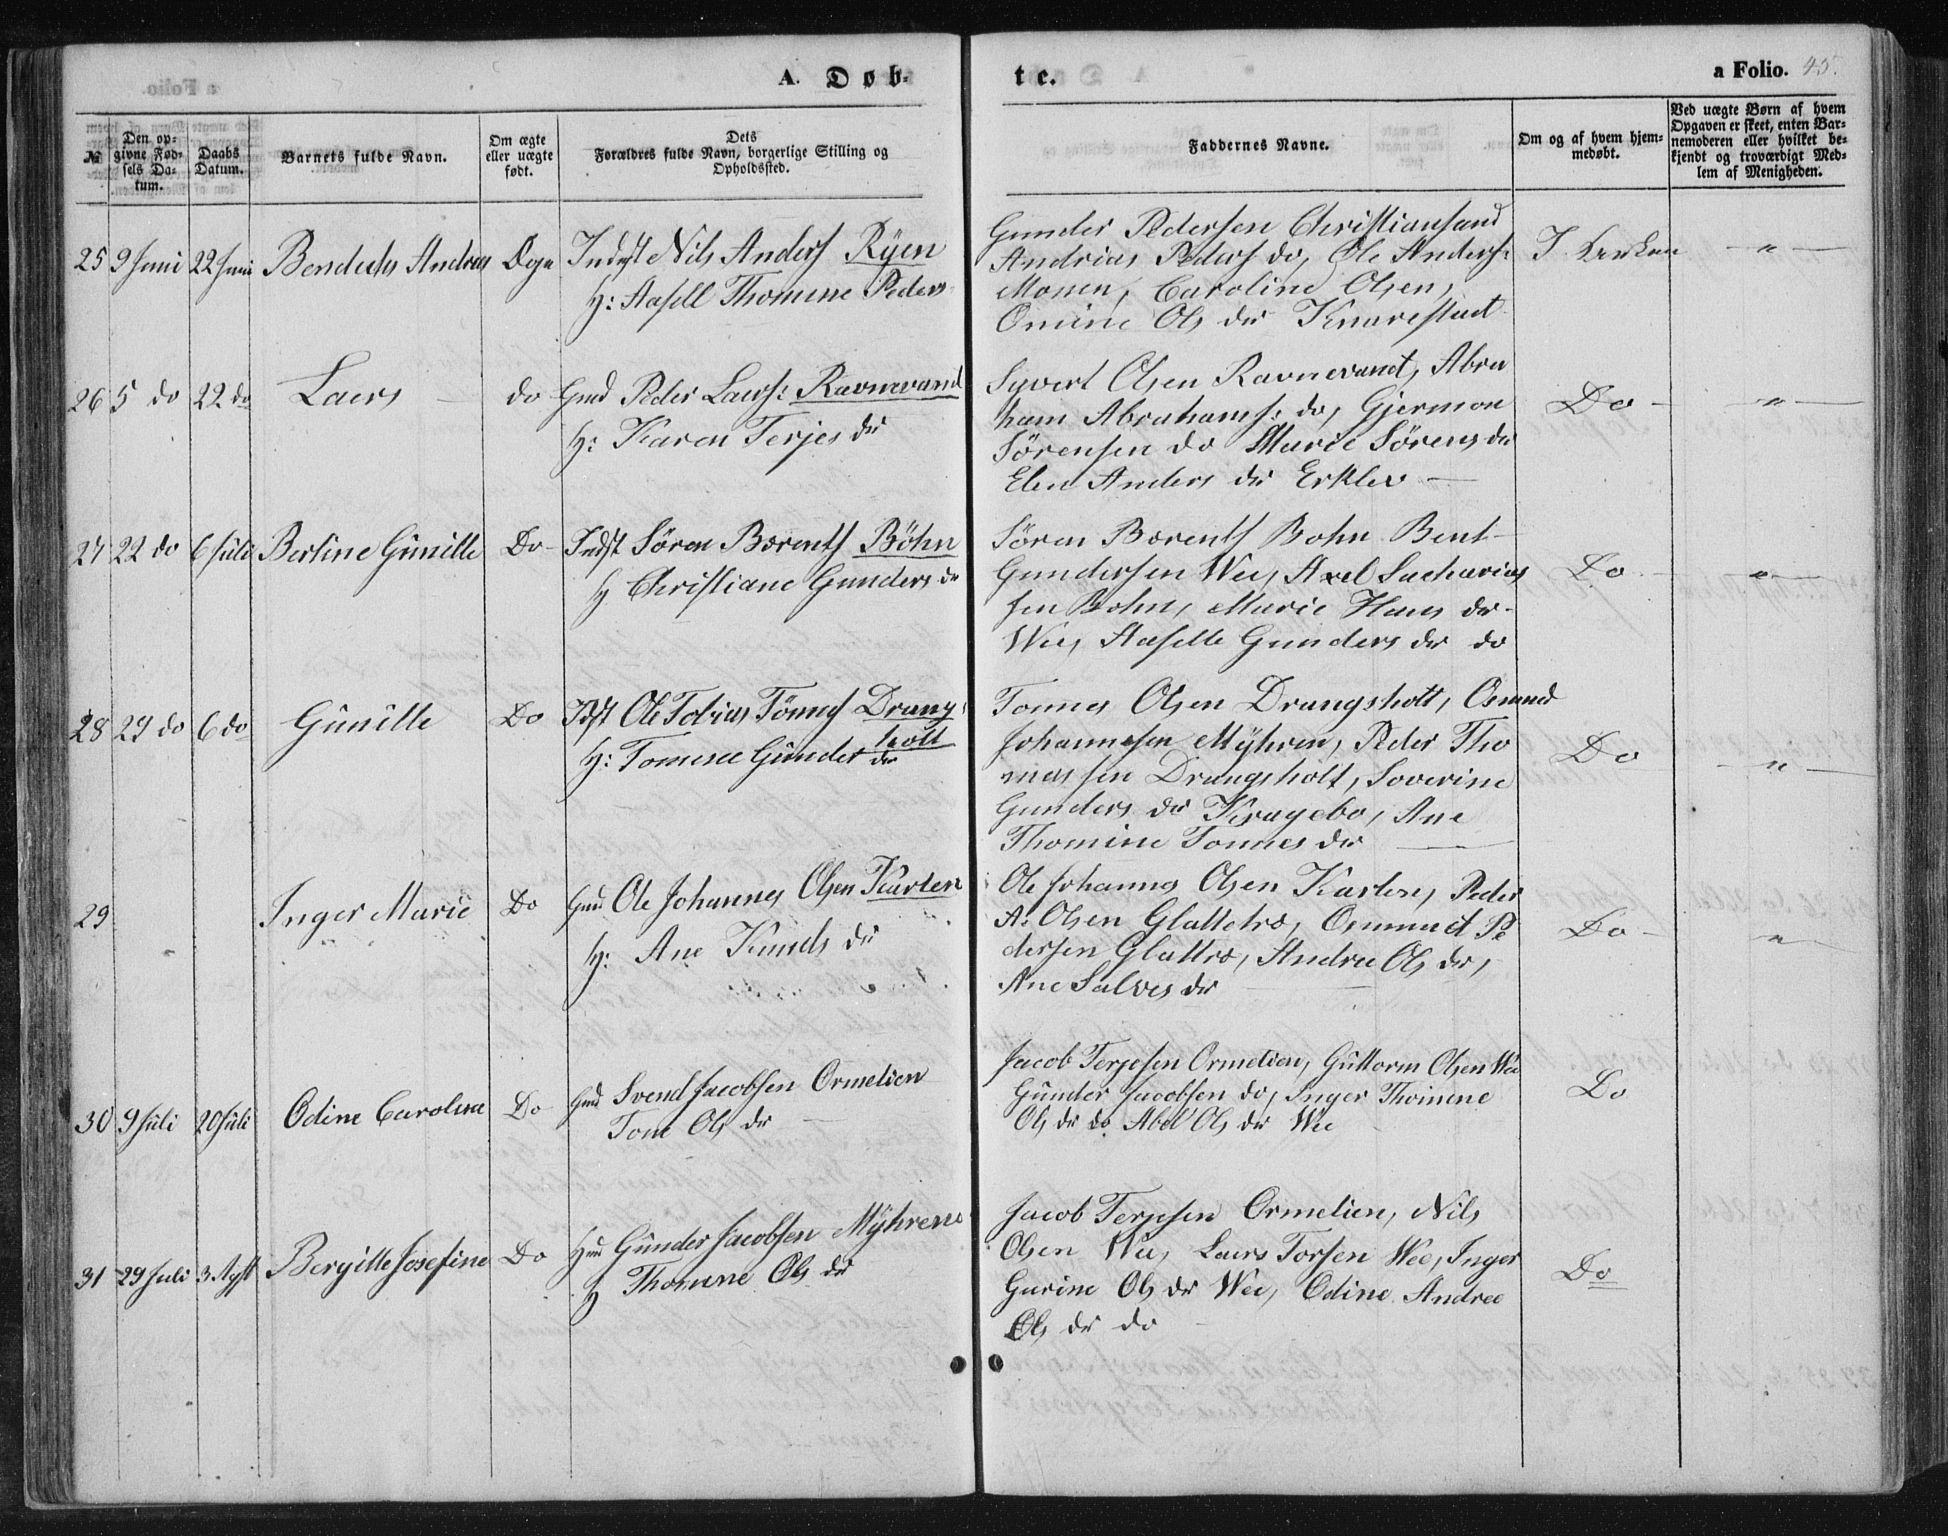 A. Døb-
te.
a Folio. 45.
№
Den opgivne Fødsels Datum.
Daabs Datum.
Barnets fulde Navn.
Om ægte eller uægte født.
Dets Forældres fulde Navn, borgerlige Stilling og Opholdssted.
Faddernes Navne.
Om og af hvem hjemmedøbt.
Ved uægte Børn af hvem Opgaven er skeet, enten Barnemoderen eller hvilket bekjendt og troværdigt Medlem af Menigheden.
25 9 Juni 22 Juni Andreas Indst Nils Anders Ryen
H: Aasell Thomine Peders
Gunder Pedersen Christiansand
Andrias Peders do, Ole Anders:
Monen, Caroline Olsen,
Omine Ols dr Knarestad
26 5 do 22 do Laers do Gmd Peder Laers: Ravnevand
H: Karen Terjes dr
Syvert Olsen Ravnevand, Abra
ham Abrahams: do, Gjermon
Sørensen do Marie Sørens dr
Elen Anders dr Erklev
Do
27 22 do 6 Juli Berline Gunille Do Indst Sören Bærents Böhn
H Christiane Gunders dr
Søren Bærents Bohn Bent
Gundersen Wee, Axel Sacharias
sen Bohn, Marie Hans dr
Wee, Aaselle Gunders dr do
Do
28 29 do 6 do Gunille Do Idst Ole Tobias Tönnes Drangs
holt
H: Tomine Gunder dr
Tonnes Olsen Drangsholt, Osmund
Johannesen Myhren, Peder Tho
massen Drangsholt, Soverine
Gunders dr Kragebo, Ane
Thomine Tonnes dr
Do
29 Inger Marie Do Gmd Ole Johannes Olsen Karlen
H: Ane Knuds dr
Ole Johannes Olsen Karlen, Peder
A. Olsen Glattetre, Osmund Pe
dersen Glattre, Andrea Ols dr,
Ane Salves dr
Do
30 9 Juli 20 Juli Odine Carolina Do Gmd Svend Jacobsen Ormelien
Tone Ols dr
Jacob Terjesen Ormelien, Guttorm Olsen Wee
Gunder Jacobsen do, Inger Thomine
Ols dr do Abel Ols dr Wee
Do
31 29 Juli 3 Agst Bergitte Josefine Do Gunder Jacobsen Myhren
H Thomine Ols dr
Jacob Terjesen Ormelien, Nils
Olsen Wee, Laers Torsen Wee, Inger
Gurine Ols dr Wee, Odine Andree
Ols dr do
Do